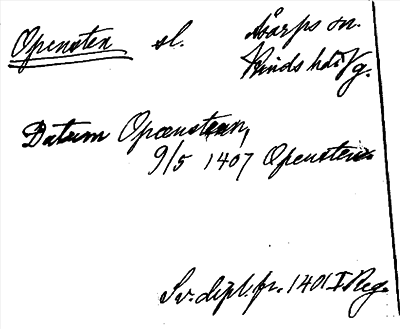 Opensten sl. Åsarps sn.
Kinds hd Vg.
Datum Opænsteen,
9/5 1407 Opensten
Sv. dipl. fr. 1401 I Reg.